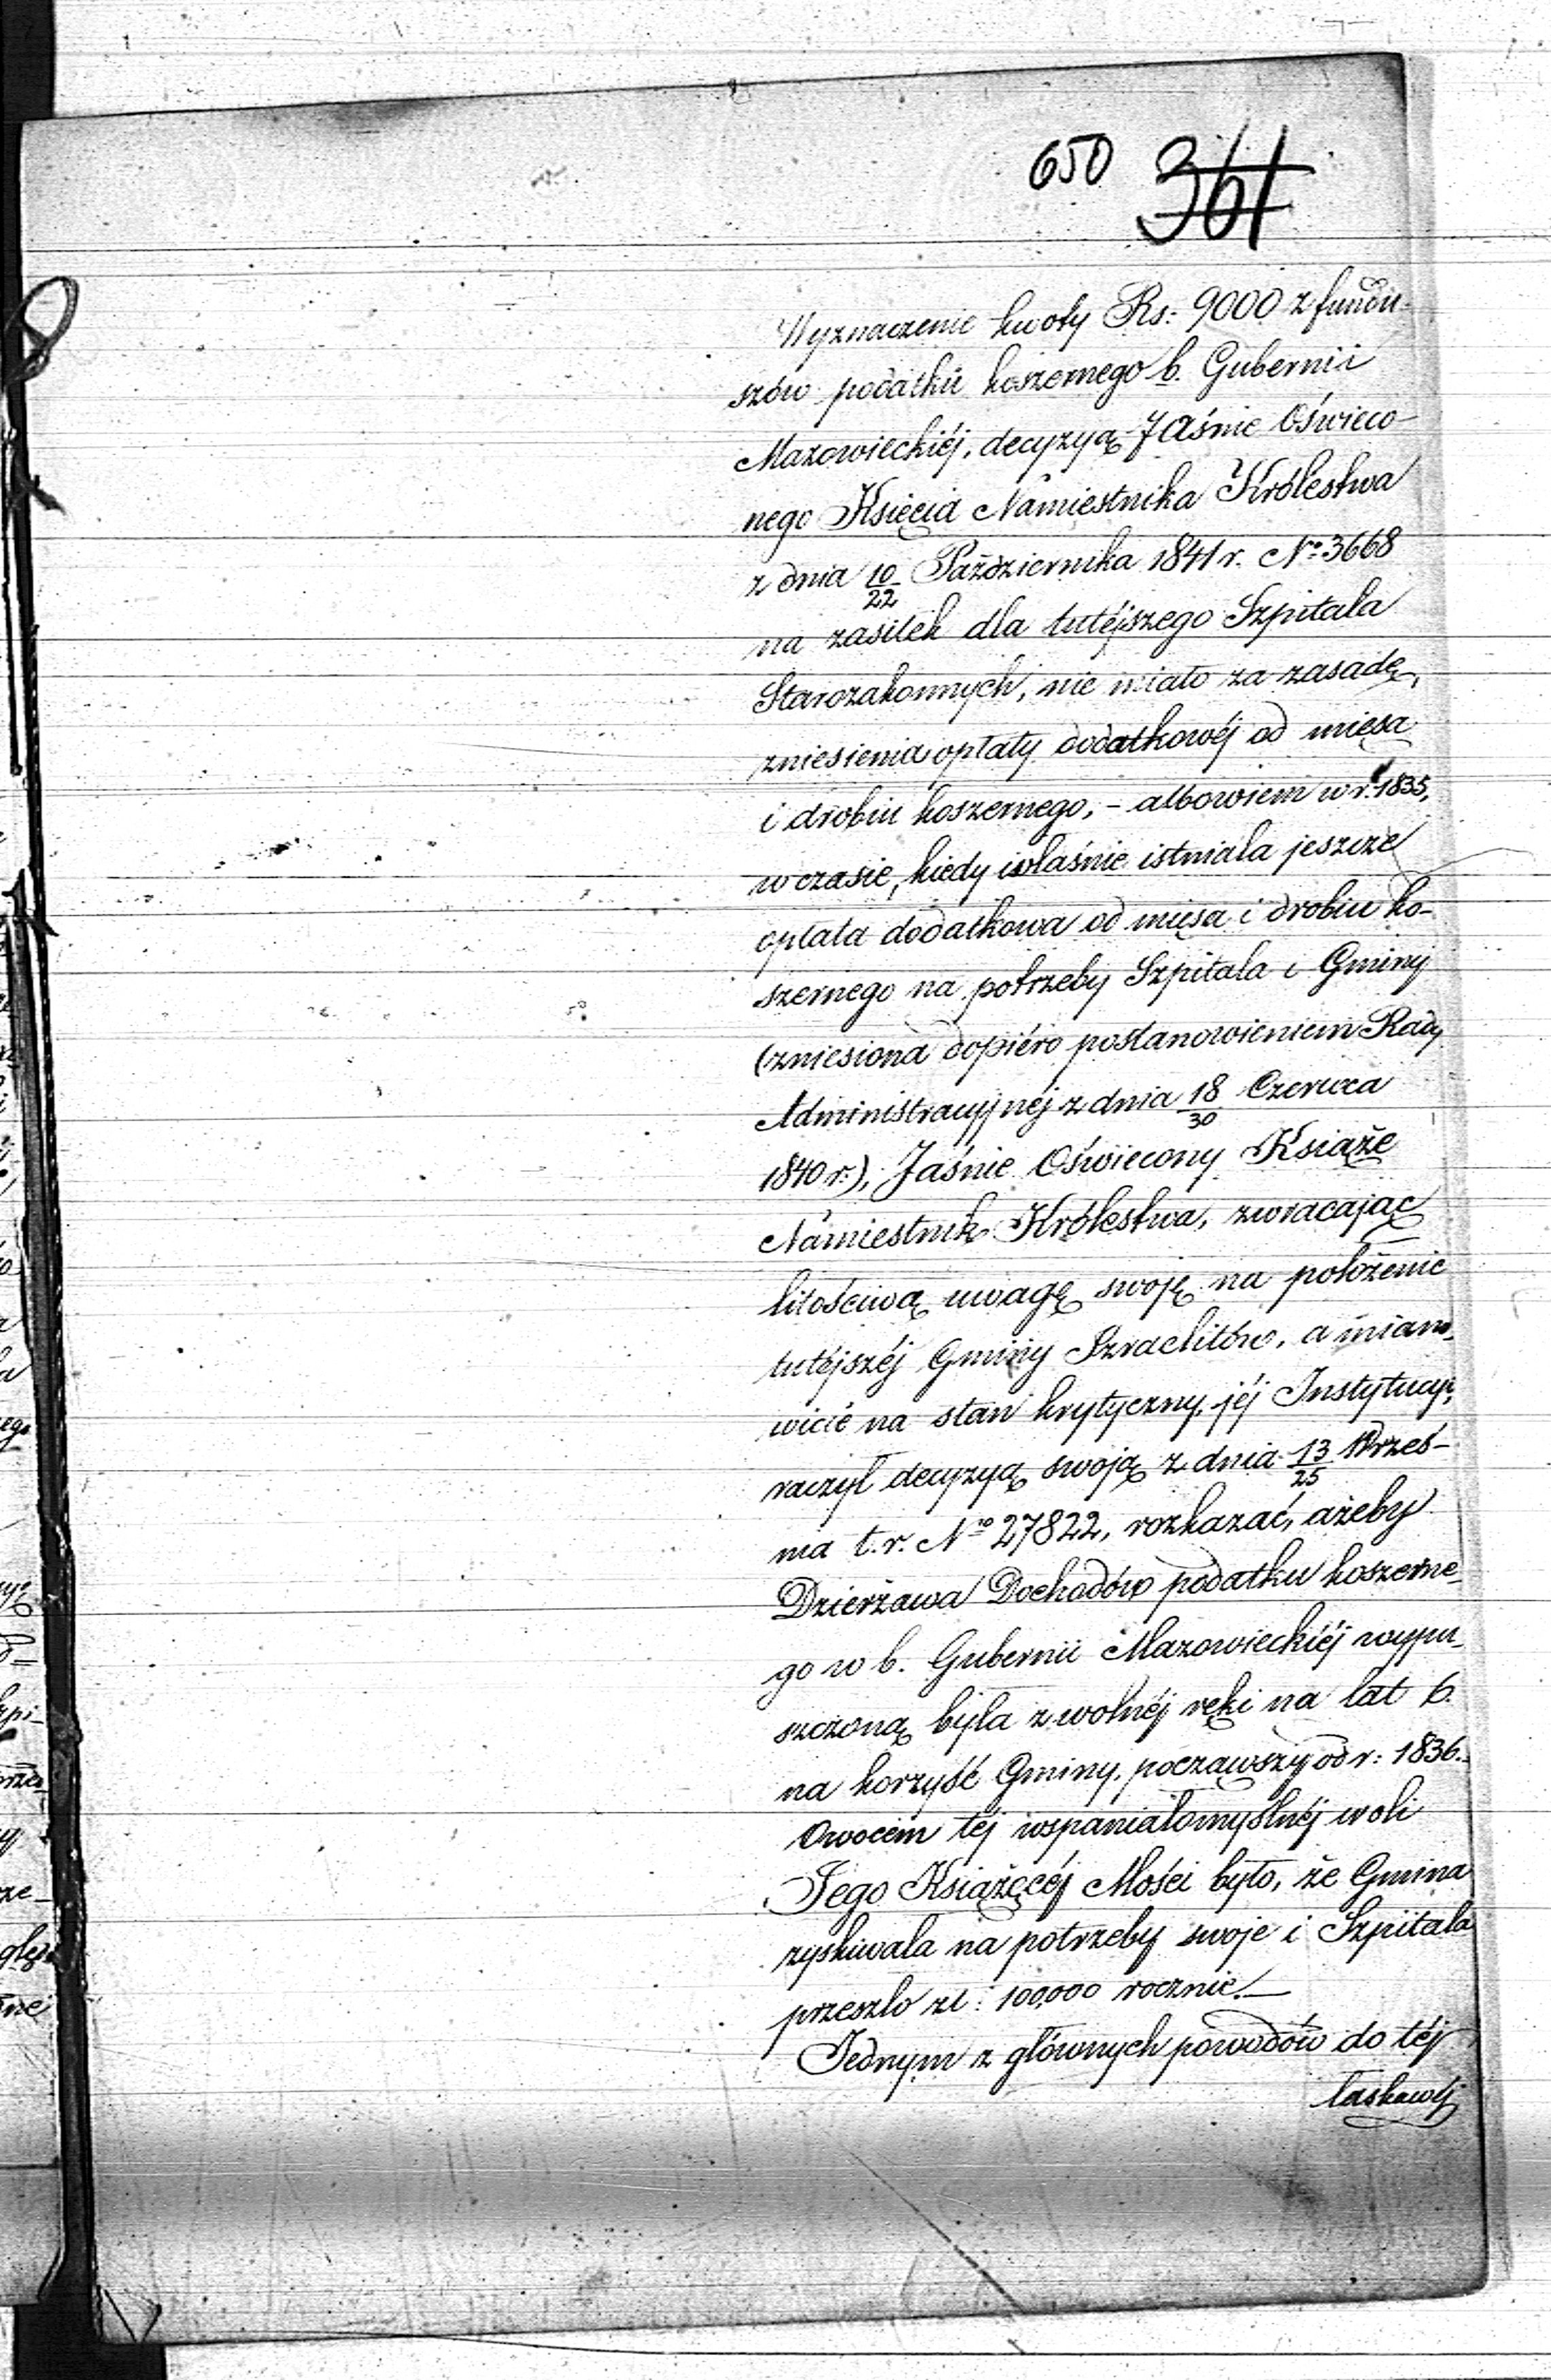 650 361
Wyznaczenie kwoty Rs: 9000 z fundu-
szów podatku koszernego b. Gubernii
Mazowieckiéj, decyzyą Jaśnie Oświeco-
nego Księcia Namiestnika Królestwa
z dnia 10/22 Października 1841 r. No 3668
na zasiłek dla tutéjszego Szpitala
Starozakonnych, nie miało za zasadę,
zniesienia opłaty dodatkowéj od mięsa
i drobiu koszernego, - albowiem w r. 1835,
w czasie, kiedy właśnie istniała jeszcze
opłata dodatkowa od mięsa i drobiu ko-
szernego na potrzeby Szpitala i Gminy
(zniesiona dopiéro postanowieniem Rady
Administracyjnéj z dnia 18/30 Czerwca
1840 r.), Jaśnie Oświecony Książe
Namiestnik Królestwa, zwracając
litościwą uwagę swoję na położenie
tutéjszéj Gminy Izraelitów, a miano-
wicie na stan krytyczny jéj Instytucyi,
raczył decyzyą swoją z dnia 13/25 Wrześ-
nia t. r. No 27822, rozkazać, ażeby
Dzierżawa Dochodów podatku koszerne-
go w b. Gubernii Mazowieckiéj wypu-
szczoną była z wolnéj ręki na lat 6.
na korzyść Gminy, począwszy od r: 1836.
Owocem téj wspaniałomyślnéj woli
Jego Książęcéj Mości było, że Gmina
zyskiwała na potrzeby swoje i Szpitala
przeszło zł: 100,000 rocznie.—
Jednym z głównych powodów do téj
łaskawéj